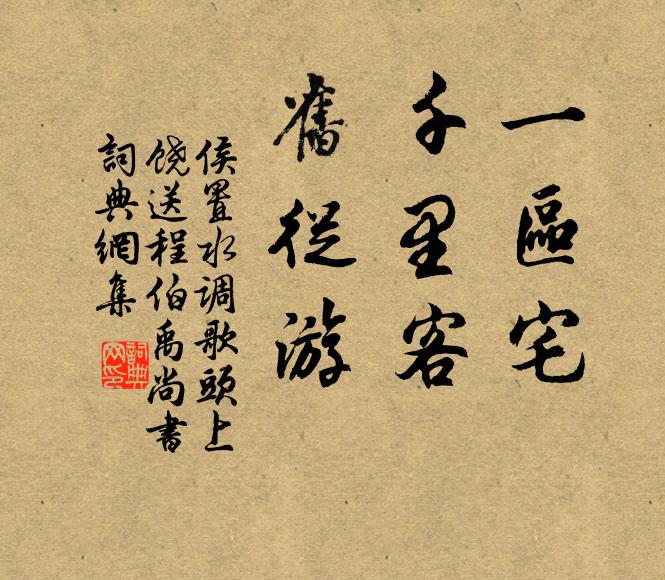 一區宅
千里客
舊從游
侯置水调歌頭上
饶送程伯禹尚書
詞典網集
詞典網印